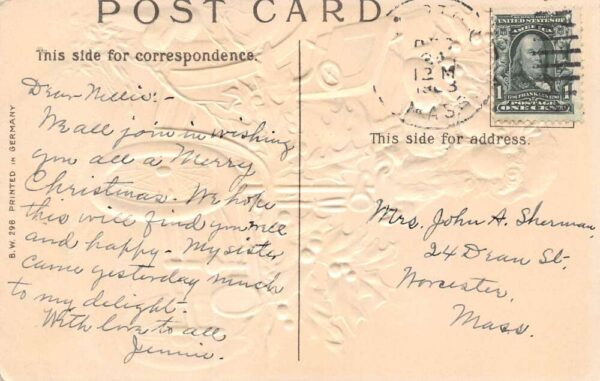 POST CARD
This side for correspondence.
Dear Nellie:-
We all join in wishing
you all a Merry
Christmas. We hope
this will find you well
and happy - My sister
came yesterday much
to my delight.
With love to all
Jennie.
B.W. 298 PRINTED IN GERMANY
12 M
MASS
UNITED STATES OF
AMERICA
FRANKLIN
POSTAGE
1 ONE CENT 1
This side for address.
Mrs. John A. Sherman,
24 Dean St.,
Worcester,
Mass.